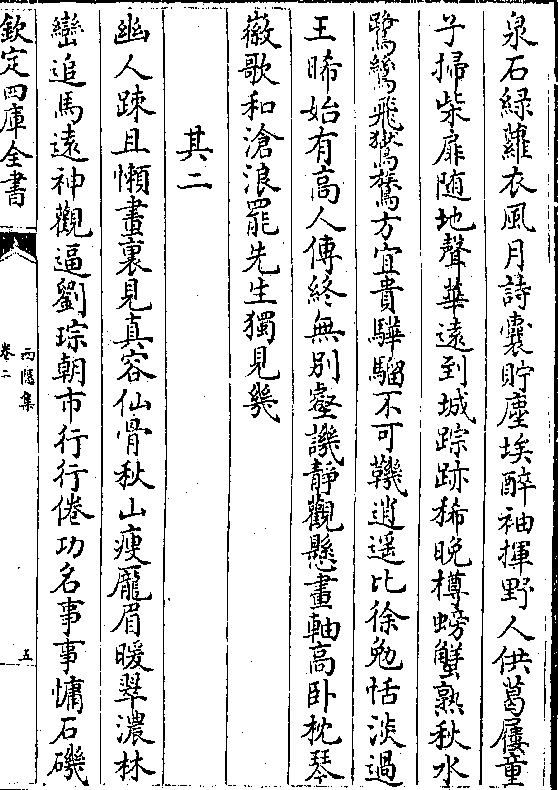 泉石緑蘿衣風月詩囊貯塵埃醉袖揮野人供葛屨童
子掃柴扉随地聲華遠到城踪跡稀晚樽螃蟹熟秋水
鷺鷥飛鴛鷟方宜貴驊騮不可鞿逍遥比徐勉恬淡過
王晞始有高人傳終無別壑譏靜觀懸畫軸高卧枕琴
徽歌和滄浪罷先生獨見幾
其二
幽人踈且懶畫裏見真容仙骨秋山瘦厖眉暖翠濃林
巒追馬遠神觀逼劉琮朝市行行倦功名事事慵石磯
欽定四庫全書
西隠集
卷二
五